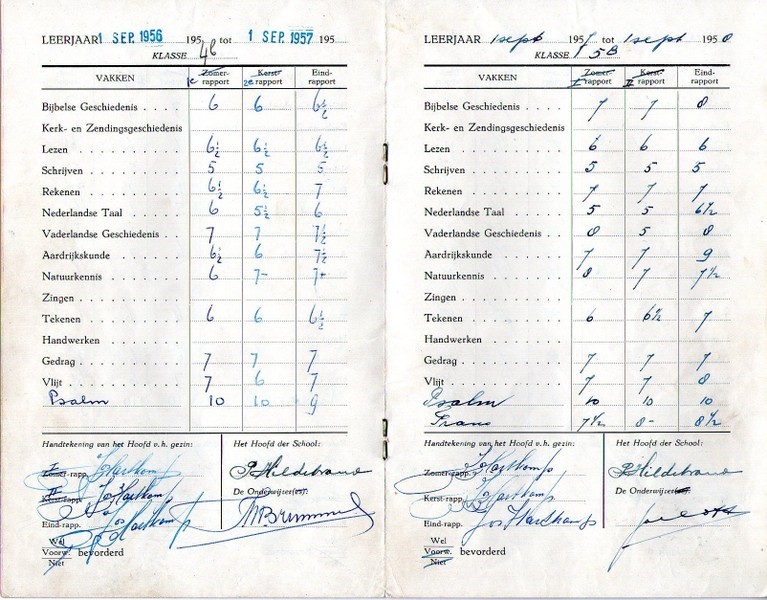 LEERJAAR 1 SEP. 1956 195 tot 1 SEP. 1957 195
KLASSE 4b
VAKKEN 1e Zomer-rapport 2e Kerst-rapport Eind-rapport
Bijbelse Geschiedenis . . . . 6 6 6½
Kerk- en Zendingsgeschiedenis
Lezen . . . . . . . . . . 6½ 6½ 6½
Schrijven . . . . . . . . . 5 5 5
Rekenen . . . . . . . . . 6½ 6½ 7
Nederlandse Taal . . . . . . 6 5½ 6
Vaderlandse Geschiedenis . . . 7 7 7½
Aardrijkskunde . . . . . . . 6½ 6 7½
Natuurkennis . . . . . . . 6 7- 7+
Zingen . . . . . . . . . .
Tekenen . . . . . . . . . 6 6 6½
Handwerken . . . . . . . .
Gedrag . . . . . . . . . . 7 7 7
Vlijt . . . . . . . . . . . 7 6 7
Psalm 10 10 9
Handtekening van het Hoofd v.h. gezin: Het Hoofd der School:
I Zomer-rapp. Jos Hardkamp P Hildebrand
II Kerst-rapp. Jos Hardkamp De Onderwijzer(es):
Eind-rapp. Jos Hardkamp MBrummel
Wel
Voorw. bevorderd
Niet
LEERJAAR 1 sept 1957 tot 1 sept 1958
KLASSE 5B
VAKKEN I Zomer-rapport II Kerst-rapport Eind-rapport
Bijbelse Geschiedenis . . . . 7 7 8
Kerk- en Zendingsgeschiedenis
Lezen . . . . . . . . . . 6 6 6
Schrijven . . . . . . . . . 5 5 5
Rekenen . . . . . . . . . 7 7 7
Nederlandse Taal . . . . . . 5 5 6½
Vaderlandse Geschiedenis . . 8 5 8
Aardrijkskunde . . . . . . . 7 7 9
Natuurkennis . . . . . . . 8 7 7½
Zingen . . . . . . . . . .
Tekenen . . . . . . . . . 6 6½ 7
Handwerken . . . . . . . .
Gedrag . . . . . . . . . . 7 7 7
Vlijt . . . . . . . . . . . 7 7 8
Psalm 10 10 10
Frans 7½ 8- 8½
Handtekening van het Hoofd v.h. gezin: Het Hoofd der School:
Zomer-rapp. Jos Hardkamp P Hildebrand
Kerst-rapp. Jos Hardkamp De Onderwijzer(es):
Eind-rapp. Jos Hardkamp
Wel
Voorw. bevorderd
Niet